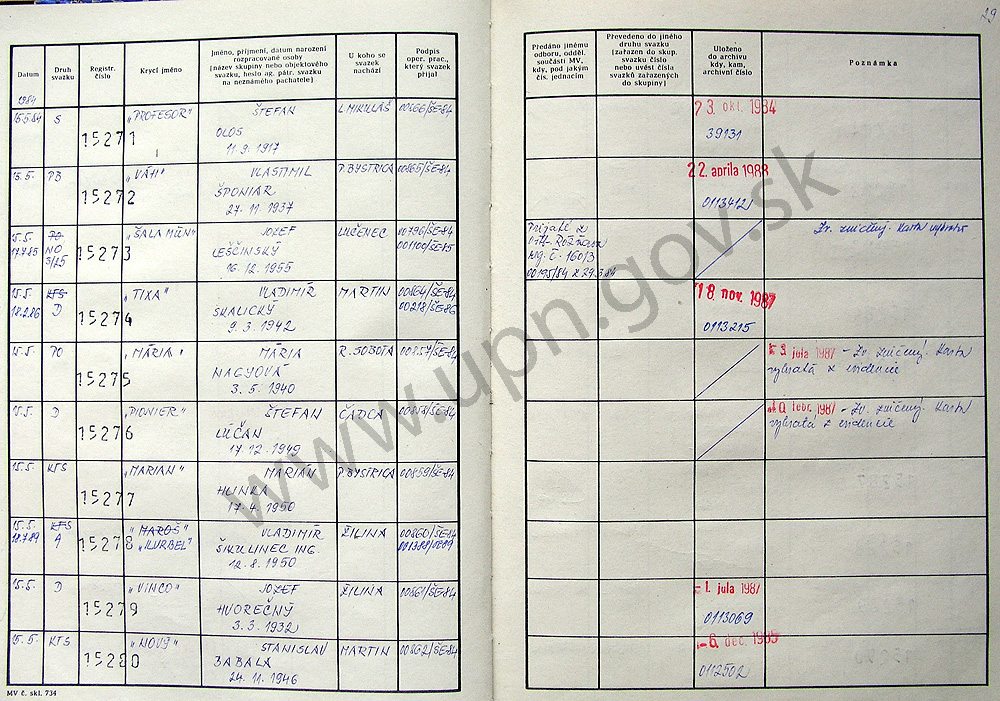 29
Datum
Druh svazku
Registr. číslo
Krycí jméno
Jméno, příjmení, datum narození
rozpracované osoby
(název skupiny nebo objektového
svazku, heslo ag. pátr. svazku
na neznámého pachatele)
U koho se
svazek
nachází
Podpis
oper. prac.,
který svazek
přijal
Předáno jinému
odboru, odděl.
součásti MV,
kdy, pod jakým
čís. jednacím
Převedeno do jiného
druhu svazku
(zařazen do skup.
svazku číslo
nebo uvést čísla
svazků zařazených
do skupiny)
Uloženo
do archivu
kdy, kam,
archivní číslo
Poznámka
1984
15.5.84 S 15271 „PROFESOR" ŠTEFAN L. MIKULÁŠ 00866/ŠE-84 23. okt. 1984
OLOS 39131
11.9.1917
15.5. PB 15272 „VÁH" VLASTIMIL P. BYSTRICA 00865/ŠE-84 22. apríla 1988
ŠPONIAR 0113412
27.11.1937
15.5. PO 15273 „ŠALAMÚN" JOZEF LUČENEC 00796/ŠE-84 Zv. zničený. Karta vybratá
17.7.85 NO LEŠČINSKÝ 001100/ŠE-85
16.12.1955 00195/84 z 29.3.84
15.5. KTS 15274 „TIXA" VLADIMÍR MARTIN 00864/ŠE-84 18. nov. 1987
18.2.86 D SKALICKÝ 00218/ŠE-86 0113215
9.3.1942
15.5. PO 15275 „MÁRIA" MÁRIA R. SOBOTA 00857/ŠE-84 3. júla 1987 - Zv. zničený. Karta
NAGYOVÁ vybratá z evidencie
3.5.1940
15.5. D 15276 „PIONIER" ŠTEFAN ČADCA 00858/ŠE-84 febr. 1987 - Zv. zničený. Karta
LÚČAN vybratá z evidencie
17.12.1949
15.5. KTS 15277 „MARIAN" MARIAN P. BYSTRICA 00859/ŠE-84
HLINKA
17.4.1950
15.5. KTS 15278 „MAROŠ" VLADIMÍR ŽILINA 00860/ŠE-84
18.7.89 A „KURBEL" ŠIKULINEC ING.
12.8.1950
15.5. D 15279 „VINCO" JOZEF ŽILINA 00861/ŠE-84 -1. júla 1987
HVOREČNÝ 0113069
3.3.1932
15.5. KTS 15280 „NOVÝ" STANISLAV MARTIN 00862/ŠE-84 -6. dec. 1985
BABALA 0112502
24.11.1946
MV č. skl. 734
www.upn.gov.sk